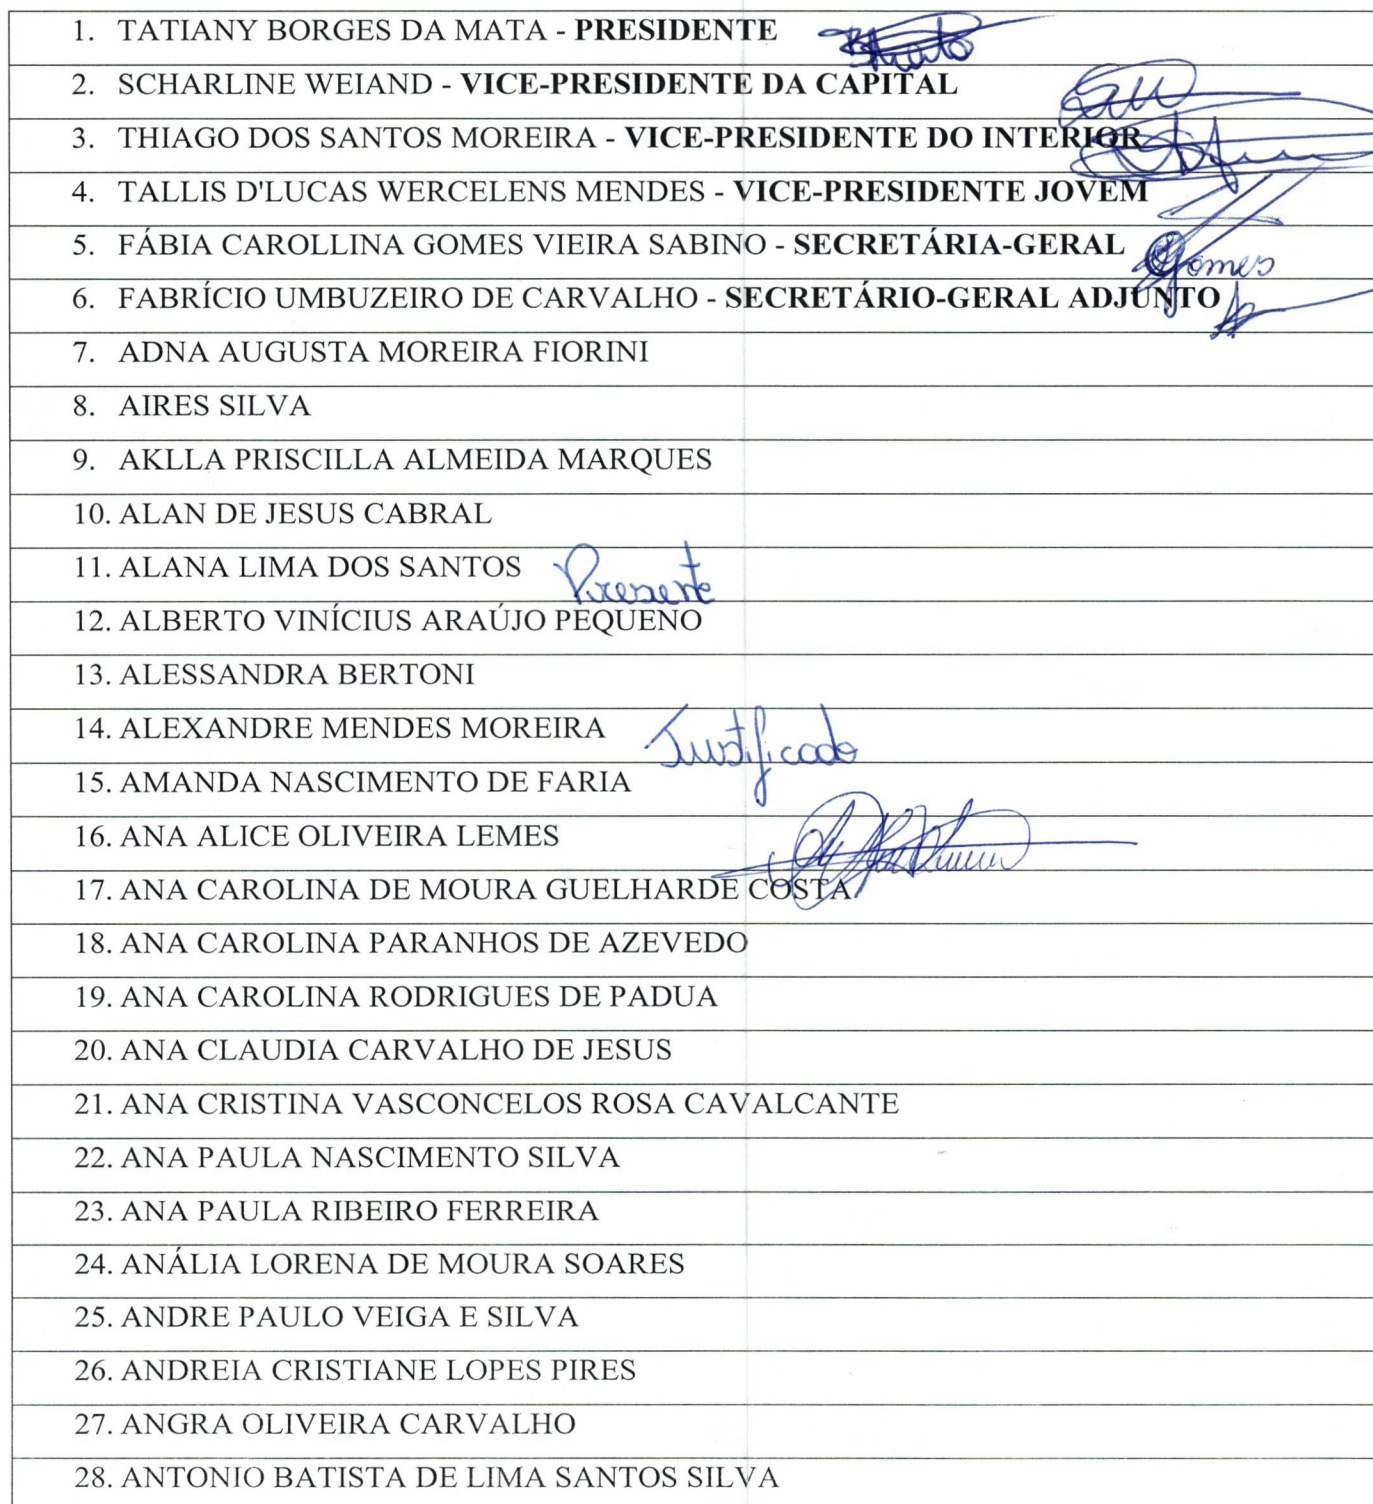 1. TATIANY BORGES DA MATA - PRESIDENTE
2. SCHARLINE WEIAND - VICE-PRESIDENTE DA CAPITAL
3. THIAGO DOS SANTOS MOREIRA - VICE-PRESIDENTE DO INTERIOR
4. TALLIS D'LUCAS WERCELENS MENDES - VICE-PRESIDENTE JOVEM
5. FÁBIA CAROLLINA GOMES VIEIRA SABINO - SECRETÁRIA-GERAL Gomes
6. FABRÍCIO UMBUZEIRO DE CARVALHO - SECRETÁRIO-GERAL ADJUNTO
7. ADNA AUGUSTA MOREIRA FIORINI
8. AIRES SILVA
9. AKLLA PRISCILLA ALMEIDA MARQUES
10. ALAN DE JESUS CABRAL
11. ALANA LIMA DOS SANTOS Presente
12. ALBERTO VINÍCIUS ARAÚJO PEQUENO
13. ALESSANDRA BERTONI
14. ALEXANDRE MENDES MOREIRA Justificado
15. AMANDA NASCIMENTO DE FARIA
16. ANA ALICE OLIVEIRA LEMES
17. ANA CAROLINA DE MOURA GUELHARDE COSTA
18. ANA CAROLINA PARANHOS DE AZEVEDO
19. ANA CAROLINA RODRIGUES DE PADUA
20. ANA CLAUDIA CARVALHO DE JESUS
21. ANA CRISTINA VASCONCELOS ROSA CAVALCANTE
22. ANA PAULA NASCIMENTO SILVA
23. ANA PAULA RIBEIRO FERREIRA
24. ANÁLIA LORENA DE MOURA SOARES
25. ANDRE PAULO VEIGA E SILVA
26. ANDREIA CRISTIANE LOPES PIRES
27. ANGRA OLIVEIRA CARVALHO
28. ANTONIO BATISTA DE LIMA SANTOS SILVA